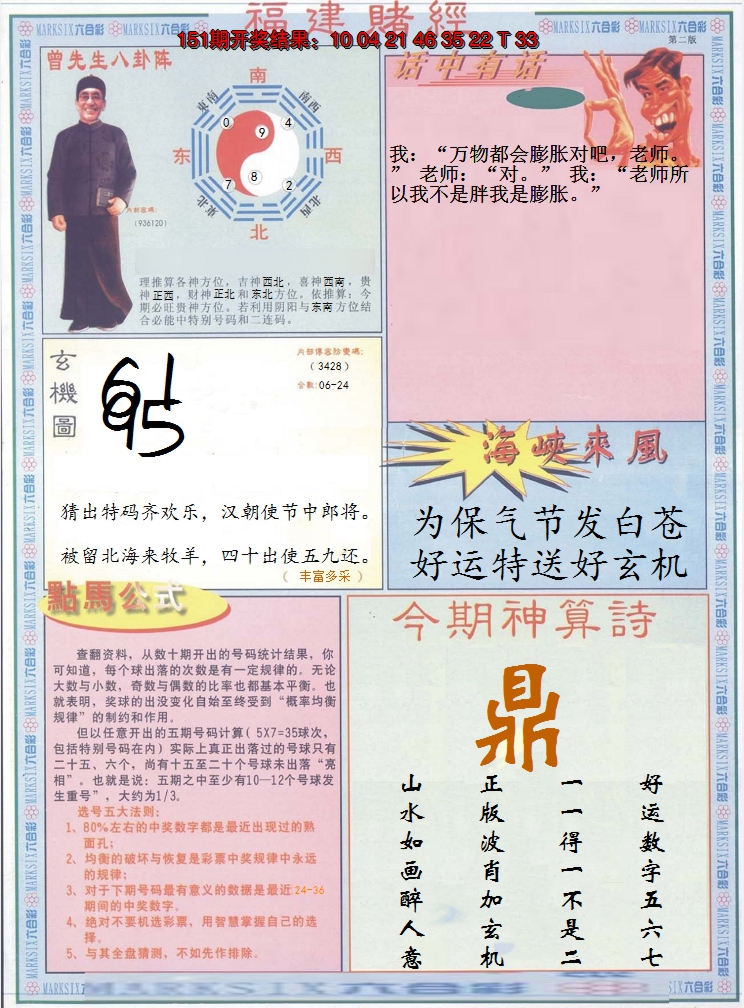 福建賭經
MARKSIX六合彩 MARKSIX六合彩 MARKSIX六合彩 MARKSIX六合彩
151期开奖结果：10 04 21 46 35 22 T 33
第二版
曾先生八卦阵
南
東南
西南
0
4
9
东
西
7
8
2
東北
西北
北
内部密碼:
(936120)
理推算各神方位，吉神西北，喜神西南，贵
神正西，财神正北和东北方位。依推算：今
期必旺贵神方位。若利用阴阳与东南方位结
合必能中特别号码和二连码。
话中有话
我：“万物都会膨胀对吧，老师。
” 老师：“对。” 我：“老师所
以我不是胖我是膨胀。”
玄機圖
内部傳密防變碼:
(3428)
合数:06-24
猜出特码齐欢乐，汉朝使节中郎将。
被留北海来牧羊，四十出使五九还。
（ 丰富多采 ）
海峽來風
为保气节发白苍
好运特送好玄机
點馬公式
查翻资料，从数十期开出的号码统计结果，你
可知道，每个球出落的次数是有一定规律的。无论
大数与小数，奇数与偶数的比率也都基本平衡。也
就表明，奖球的出没变化自始至终受到“概率均衡
规律”的制约和作用。
但以任意开出的五期号码计算( 5X7=35球次，
包括特别号码在内) 实际上真正出落过的号球只有
二十五、六个，尚有十五至二十个号球未出落“亮
相”。也就是说：五期之中至少有10—12个号球发
生重号”，大约为1/3。
选号五大法则：
1、80%左右的中奖数字都是最近出现过的熟
面孔；
2、均衡的破坏与恢复是彩票中奖规律中永远
的规律；
3、对于下期号码最有意义的数据是最近24-36
期间的中奖数字。
4、绝对不要机选彩票，用智慧掌握自己的选
择。
5、与其全盘猜测，不如先作排除。
今期神算詩
鼎
好运数字五六七
一一得一不是二
正版波肖加玄机
山水如画醉人意